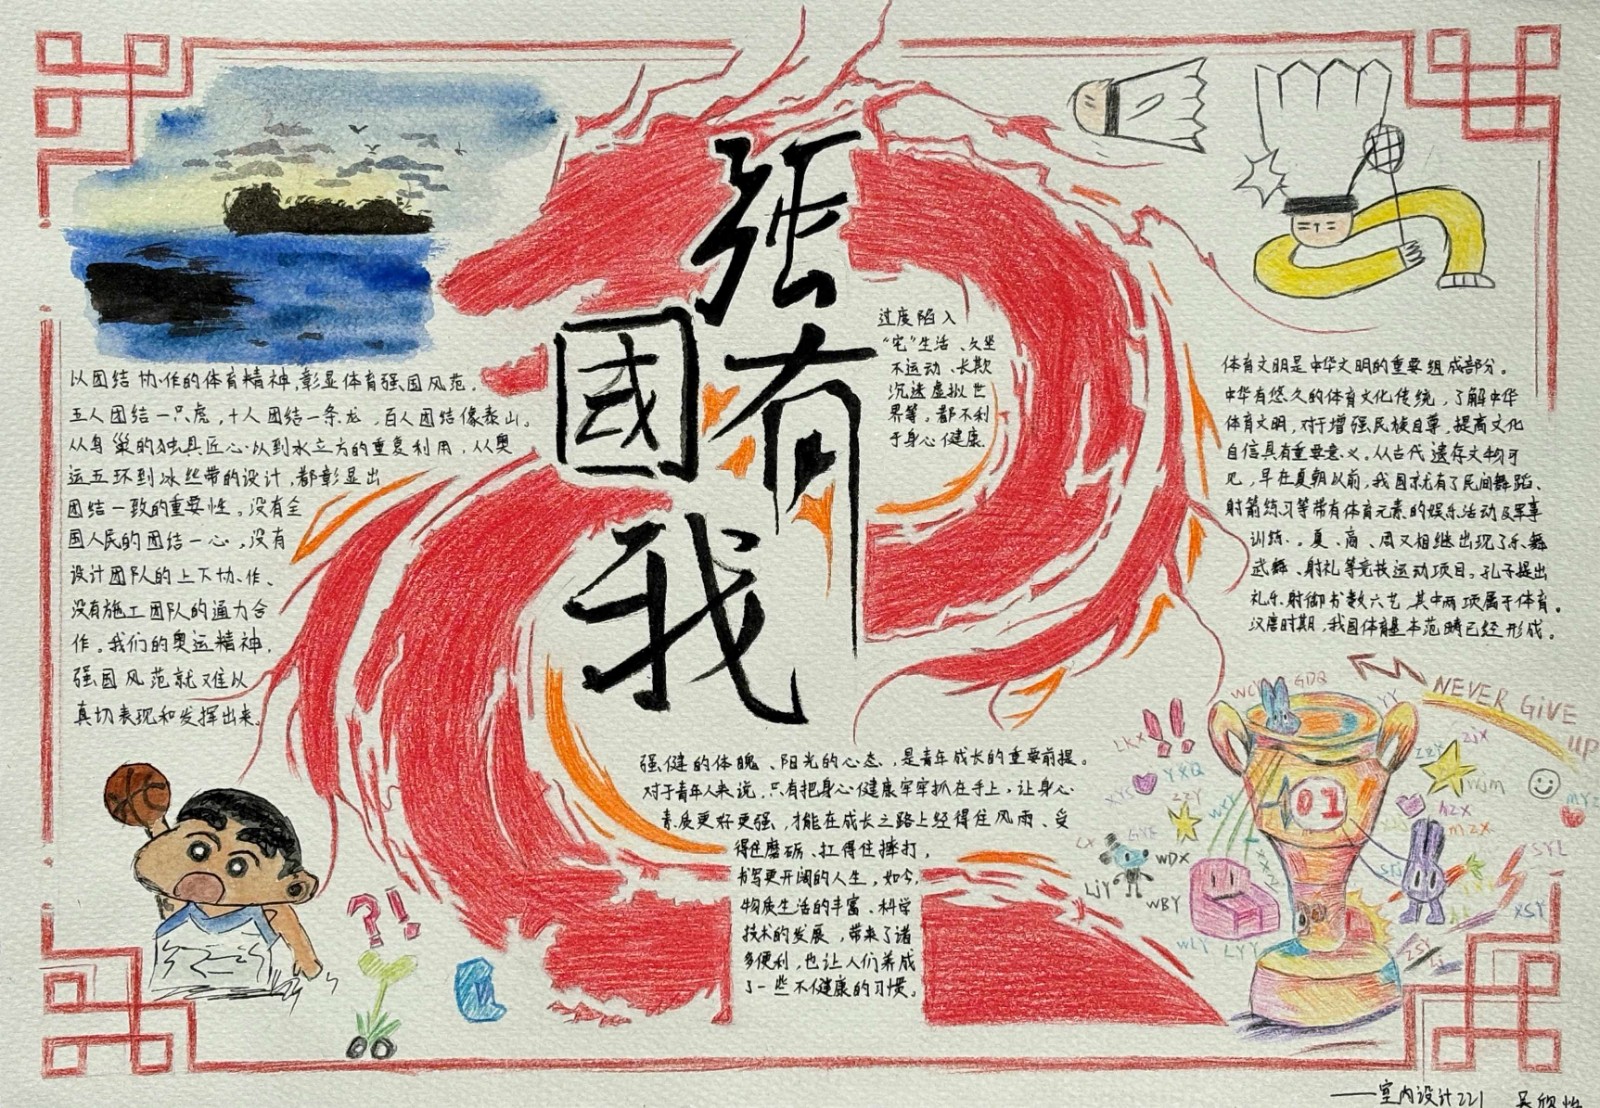 强
國有
我
以团结协作的体育精神,彰显体育强国风范。
五人团结一只虎,十人团结一条龙,百人团结像泰山。
从鸟巢的独具匠心以到水立方的重复利用,从奥
运五环到冰丝带的设计,都彰显出
团结一致的重要性。没有全
国人民的团结一心,没有
设计团队的上下协作、
没有施工团队的通力合
作。我们的奥运精神,
强国风范就难以
真切表现和发挥出来。
过度陷入
“宅”生活、久坐
不运动、长期
沉迷虚拟世
界等。都不利
于身心健康。
体育文明是中华文明的重要组成部分。
中华有悠久的体育文化传统,了解中华
体育文明,对于增强民族自尊,提高文化
自信具有重要意义。从古代遗存文物可
见,早在夏朝以前,我国就有了民间舞蹈、
射箭练习等带有体育元素的娱乐活动及军事
训练.。夏、商、周又相继出现了乐舞
武舞、射礼等竞技运动项目。孔子提出
礼乐射御书数六艺,其中两项属于体育。
汉唐时期,我国体育基本范畴已经形成。
强健的体魄、阳光的心态,是青年成长的重要前提。
对于青年人来说,只有把身心健康牢牢抓在手上,让身心
素质更好更强,才能在成长之路上经得住风雨、受
得住磨砺、扛得住摔打,
书写更开阔的人生,如今,
物质生活的丰富、科学
技术的发展,带来了诸
多便利,也让人们养成
了一些不健康的习惯。
?!
NEVER GiVE
UP
WCY GDQ YY
LKX
YXQ
XYS
ZZY
WKY
ZZY ZJX
WJM
MYZ
HZX
MZX
01
LX GYE
WDX
LJY
WBY
WLY LYY
SYL
XSY
——室内设计221 吴欣怡